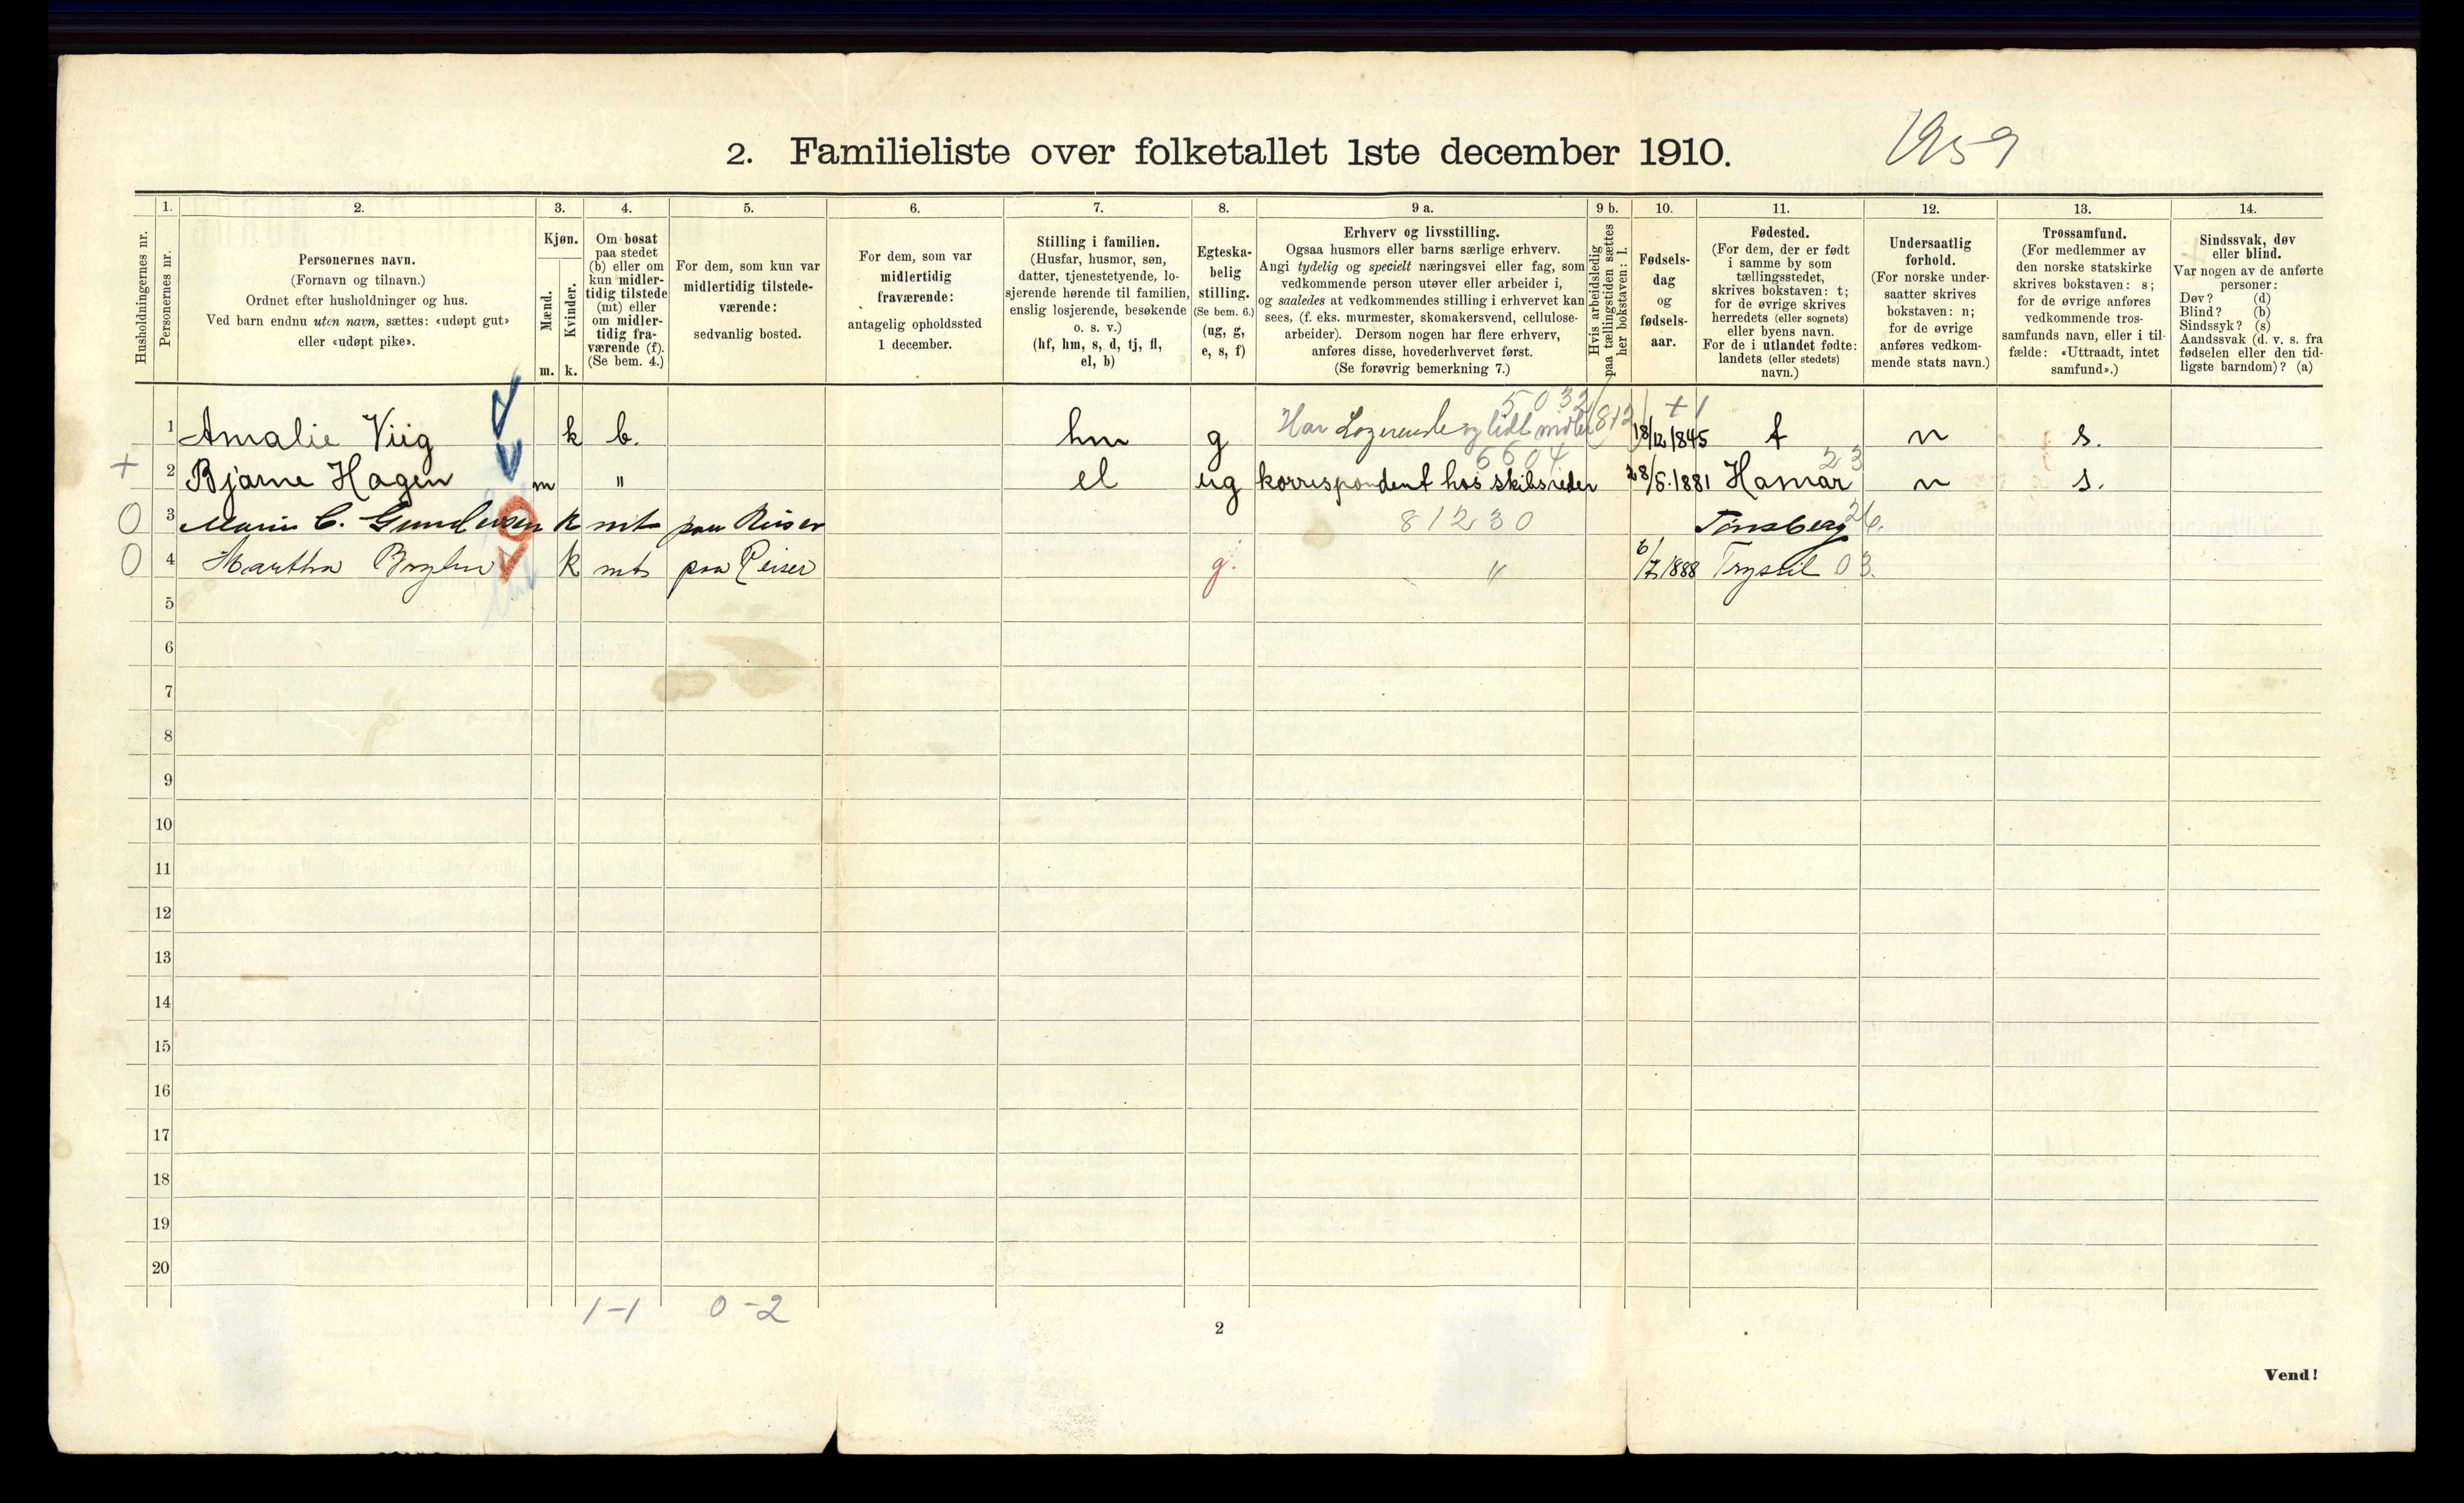 2. Familieliste over folketallet 1ste december 1910.
1959
Husholdningernes nr.
1.
Personernes nr.
2.
Personernes navn.
(Fornavn og tilnavn.)
Ordnet efter husholdninger og hus.
Ved barn endnu uten navn, sættes: «udøpt gut»
eller «udøpt pike».
3.
Kjøn.
Mænd.
Kvinder.
m. k.
4.
Om bosat
paa stedet
(b) eller om
kun midler-
tidig tilstede
(mt) eller
om midler-
tidig fra-
værende (f).
(Se bem. 4.)
5.
For dem, som kun var
midlertidig tilstede-
værende:
sedvanlig bosted.
6.
For dem, som var
midlertidig
fraværende:
antagelig opholdssted
1 december.
7.
Stilling i familien.
(Husfar, husmor, søn,
datter, tjenestetyende, lo-
sjerende hørende til familien,
enslig losjerende, besøkende
o. s. v.)
(hf, hm, s, d, tj, fl,
el, b)
8.
Egteska-
belig
stilling.
(Se bem. 6.)
(ug, g,
e, s, f)
9 a.
Erhverv og livsstilling.
Ogsaa husmors eller barns særlige erhverv.
Angi tydelig og specielt næringsvei eller fag, som
vedkommende person utøver eller arbeider i,
og saaledes at vedkommendes stilling i erhvervet kan
sees, (f. eks. murmester, skomakersvend, cellulose-
arbeider). Dersom nogen har flere erhverv,
anføres disse, hovederhvervet først.
(Se forøvrig bemerkning 7.)
9 b.
Hvis arbeidsledig
paa tællingstiden sættes
her bokstaven: l.
10.
Fødsels-
dag
og
fødsels-
aar.
11.
Fødested.
(For dem, der er født
i samme by som
tællingsstedet,
skrives bokstaven: t;
for de øvrige skrives
herredets (eller sognets)
eller byens navn.
For de i utlandet fødte:
landets (eller stedets)
navn.)
12.
Undersaatlig
forhold.
(For norske under-
saatter skrives
bokstaven: n;
for de øvrige
anføres vedkom-
mende stats navn.)
13.
Trossamfund.
(For medlemmer av
den norske statskirke
skrives bokstaven: s;
for de øvrige anføres
vedkommende tros-
samfunds navn, eller i til-
fælde: «Uttraadt, intet
samfund».)
14.
Sindssvak, døv
eller blind.
Var nogen av de anførte
personer:
Døv? (d)
Blind? (b)
Sindssyk? (s)
Aandssvak (d. v. s. fra
fødselen eller den tid-
ligste barndom)? (a)
5032 +1
1 Amalie Viig k b. hm g Har Logerende og lidt midler 18/12 1845 t n s.
6604 23
+ 2 Bjarne Hagen m " el ug korrespondent hos skibsreder 28/5.1881 Hamar n s.
0 3 Marie C. Gundersen k mt paa Reiser 81230 Tønsberg 26.
0 4 Martha k mt paa Reiser g. " 6/7 1888 Trysil 03.
5
6
7
8
9
10
11
12
13
14
15
16
17
18
19
20
1-1 0-2
2
Vend!